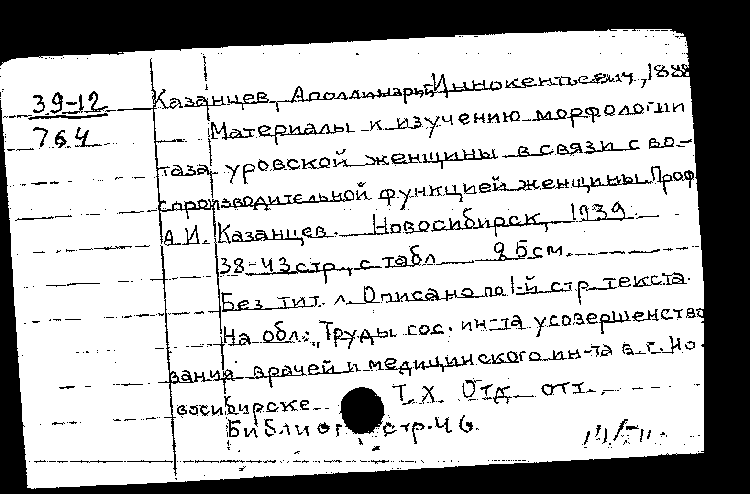 39-12
764
Казанцев, Аполлинарий Иннокентьевич, 1888
Материалы к изучению морфологии
таза уровской женщины в связи с во-
спроизводительной функцией женщины. Проф.
А.И. Казанцев. Новосибирск, 1939.
38-43 стр., с табл. 25 см.
Без тит. л. Описано по 1-й стр. текста.
На обл.: „Труды гос. ин-та усовершенство
вания врачей и медицинского ин-та в г. Но-
восибирске. Т. X. Отд. отт.
Библиог стр. 46.